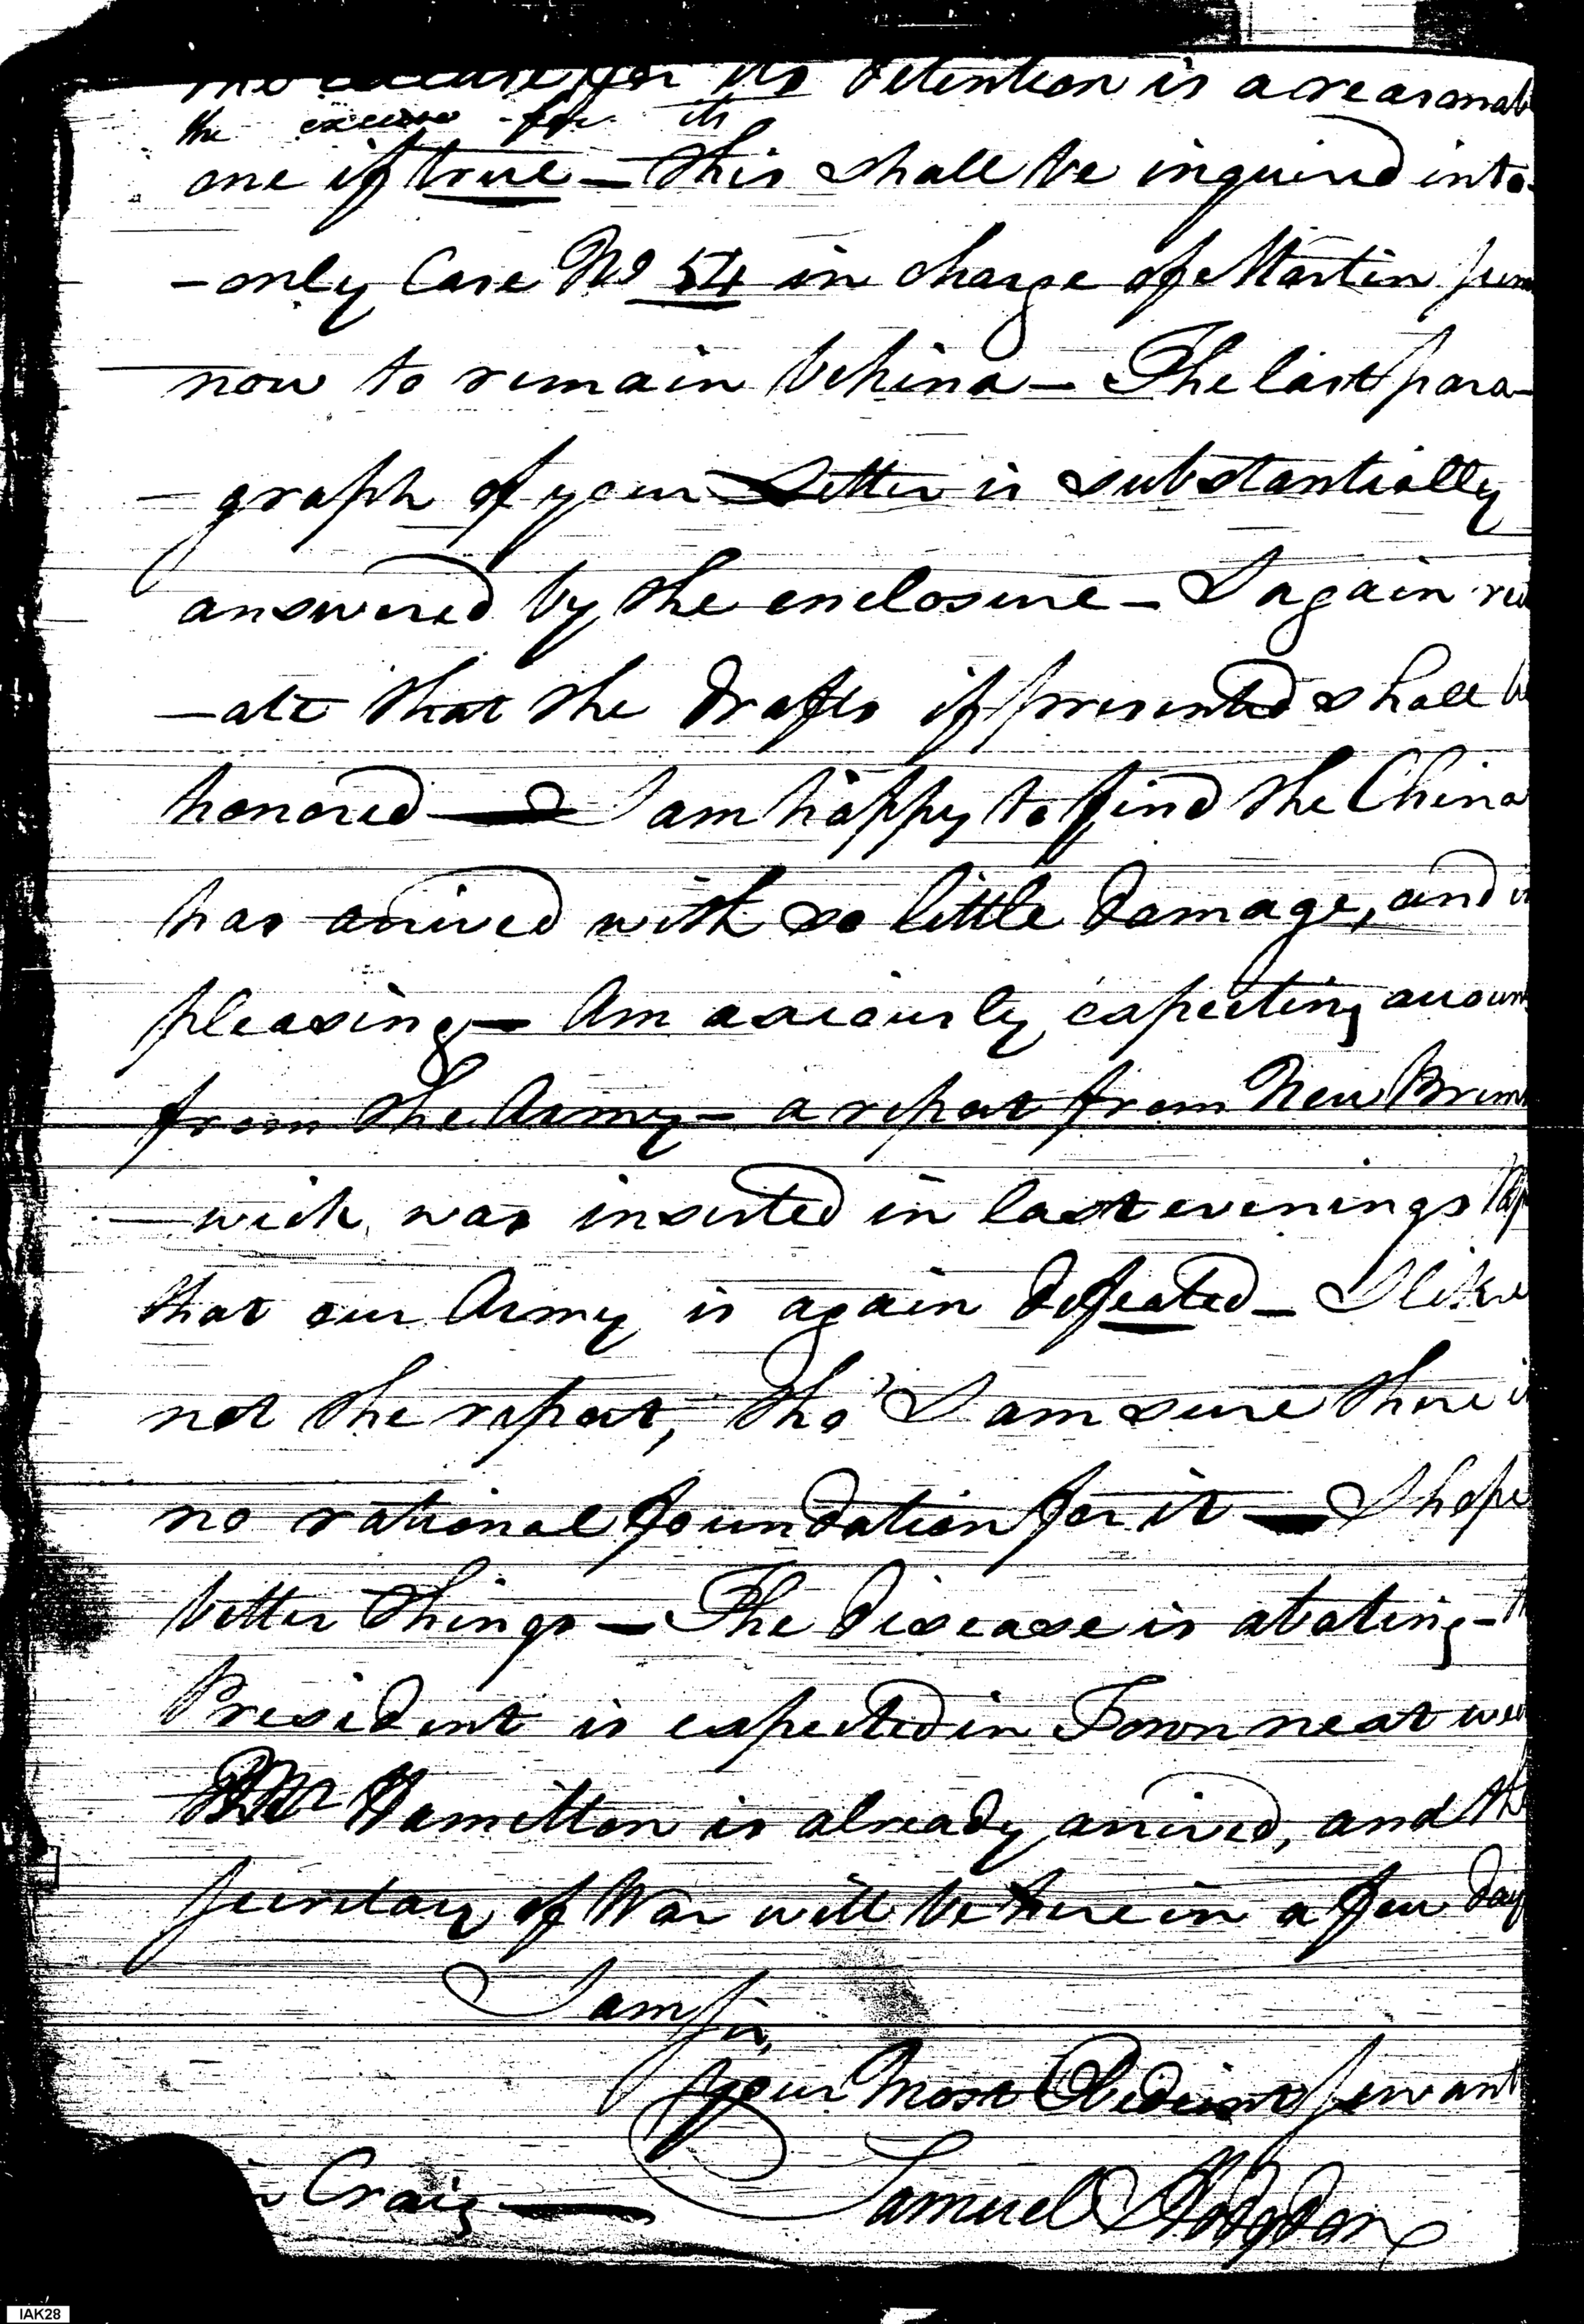 the excuse for its detention is a reasonab
the excuse for its
one if true — this shall be inquired into
- only Case No 54 in charge of Martin
now to remain behind — The last para-
- graph of your Letter is substantially
answered by the enclosure — I again
- ate that the drafts if presented shall be
honored — I am happy to find the China
has arrived with so little damage, and
pleasing — Am anxiously expecting accoun
from the Army — a report from New Bruns
- wick was inserted in last evenings
that our Army is again defeated — I like
not the report, tho' I am sure there is
no rational foundation for it — I hope
better things — The disease is abating —
President is expected in Town next wee
Mr Hamilton is already arrived, and the
Secretary of War will be here in a few day
I am Sir,
your Most Obedient Servant
Craig — Samuel Hodgdon
IAK28